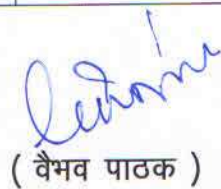 ( वैभव पाठक )